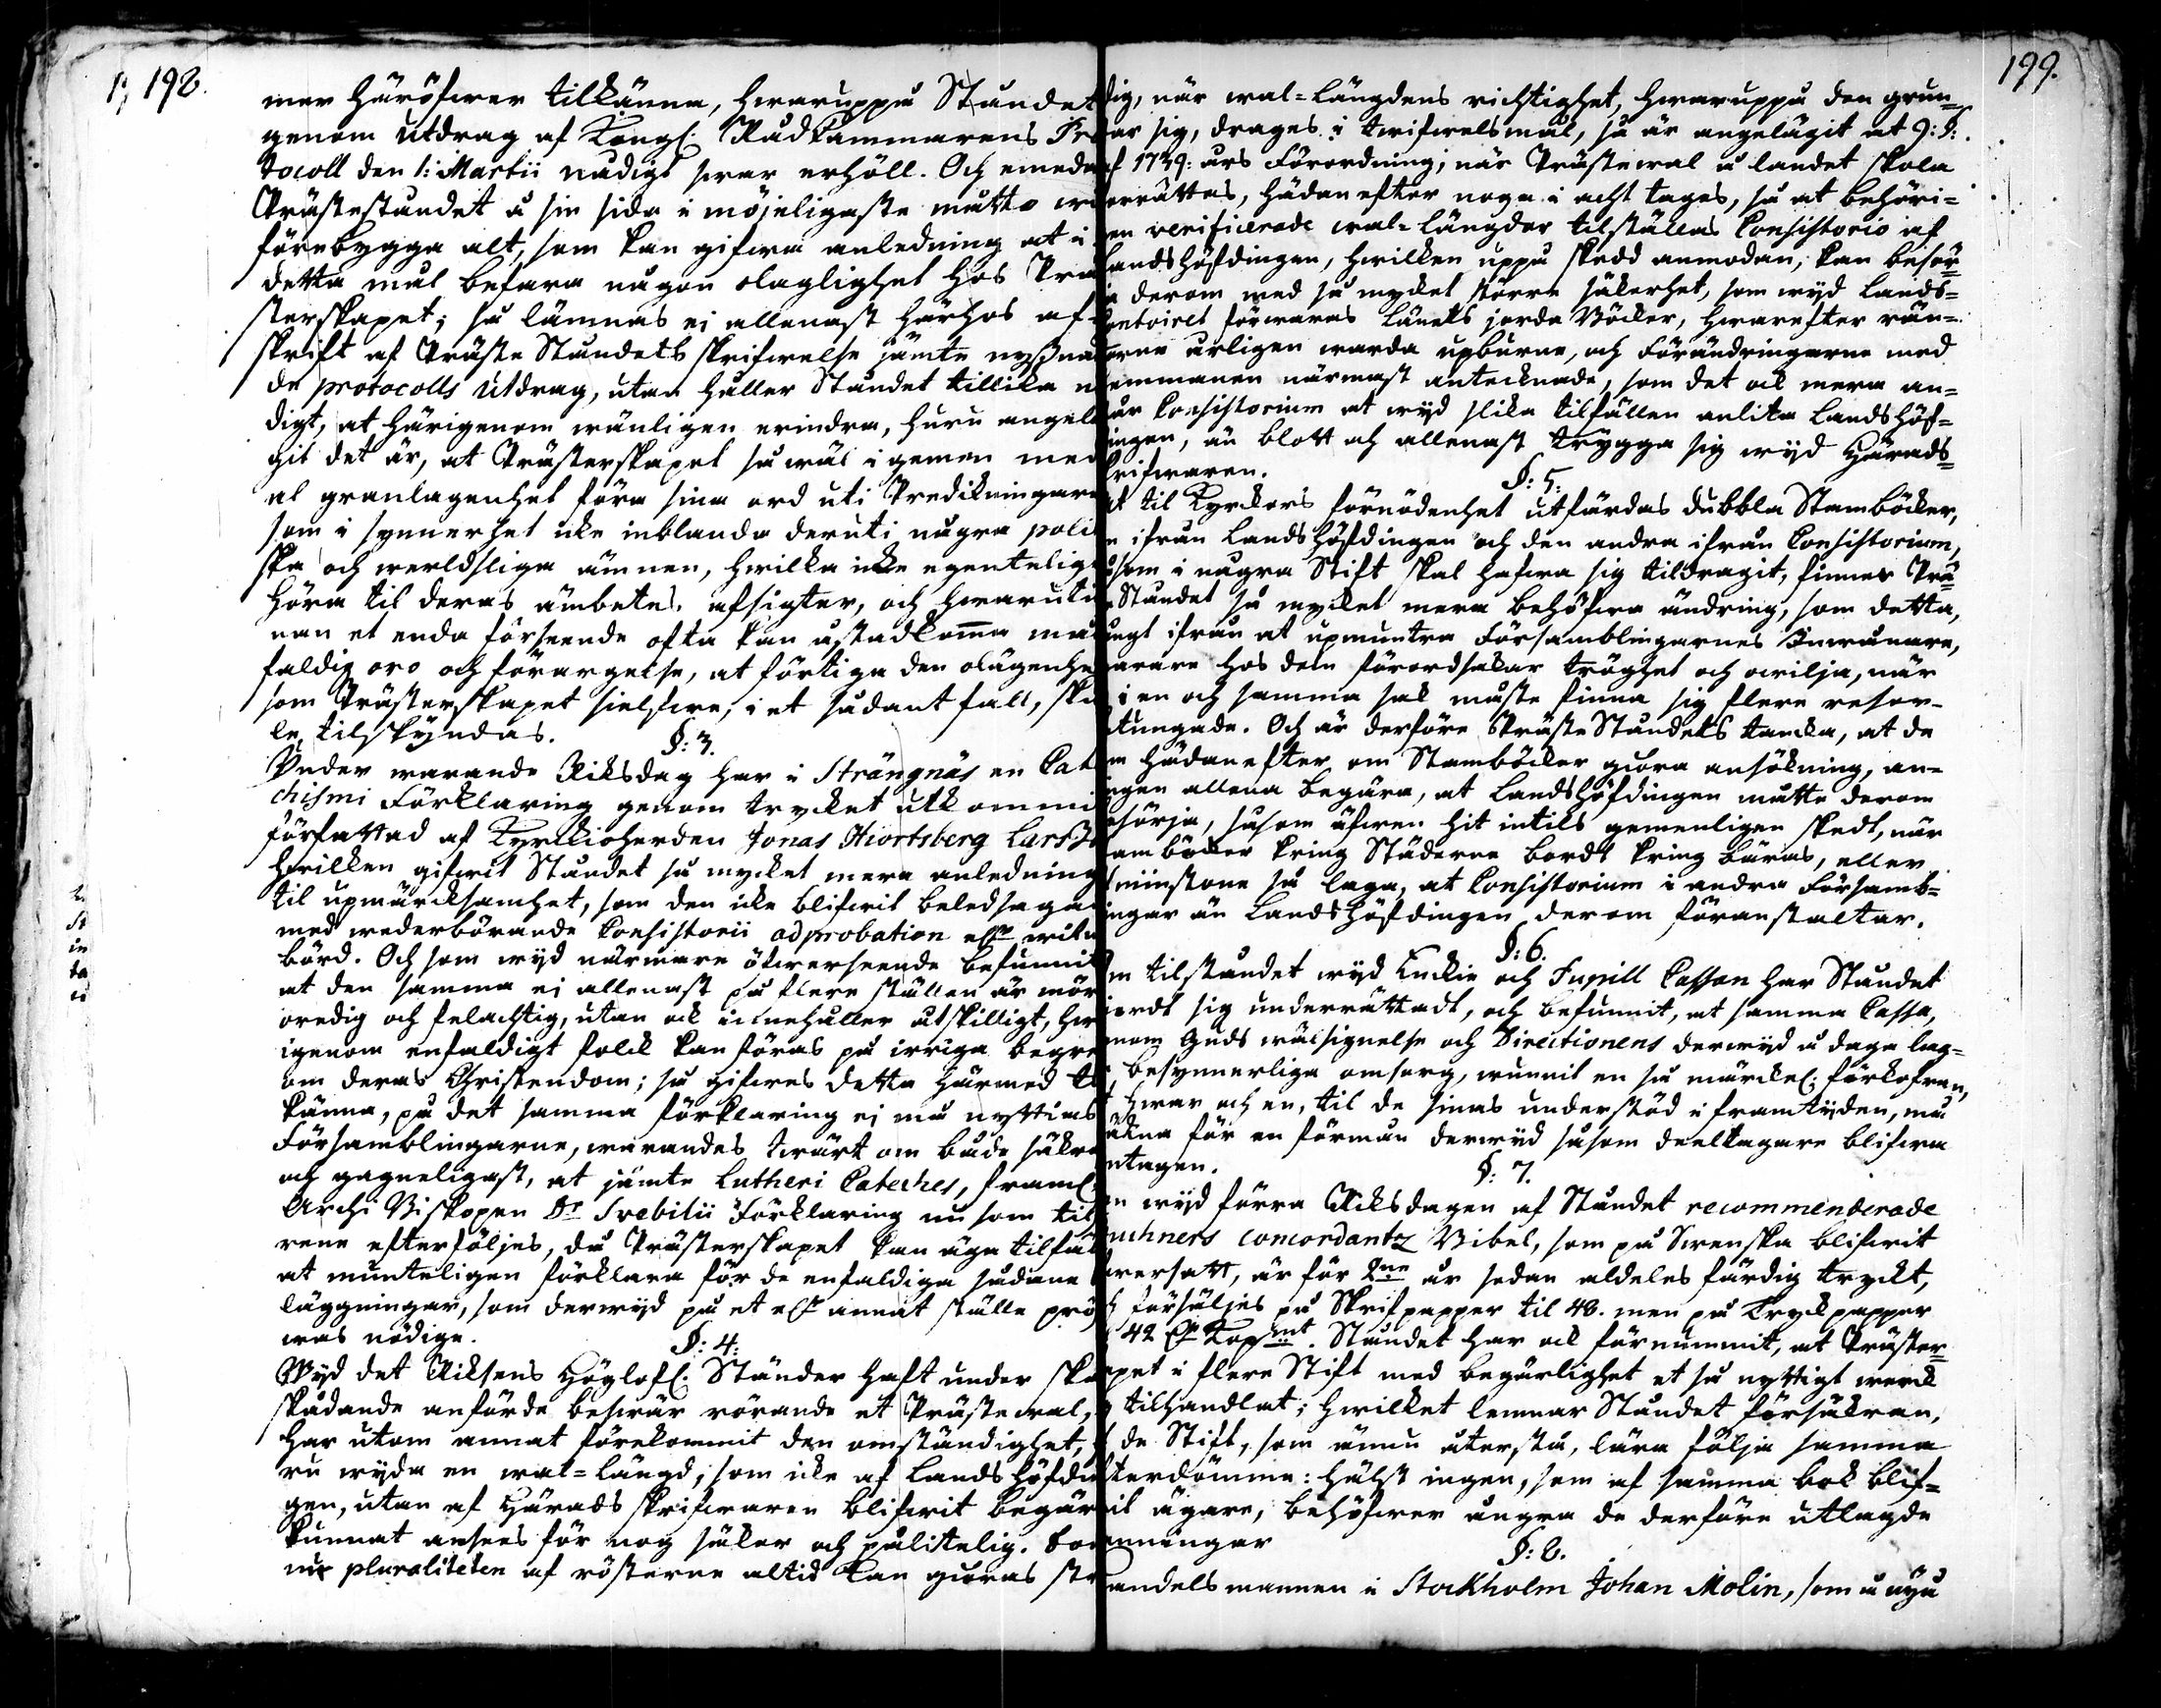 198.
mer häröfwer tilkänna, hwaruppå Ståndet
genom Utdrag af Kongl. RådKammarens Pro
tocoll den 1: Martii nådigt swar erhöll. Och emeda
Prästeståndet å sin sida i möjeligaste måtto
förebygga alt, som kan gifwa anledning at i
detta mål befara någon olaglighet hos Prä
sterskapet; så lämnas ej allenast härhos af
skrift af Präste Ståndets skrifwelse jämte nyßnäm
de protocolls Utdrag, utan håller Ståndet tillika n
digt, at härigenom wänligen erindra, huru angelä
git det är, at Prästerskapet så wäl i gemen med
al granlagenhet föra sina ord uti Predikningar
som i synnerhet icke inblanda deruti några poli
ska och werldsliga ämnen, hwilka icke egentelige
höra til deras ämbetes afsigter, och hwaruti
nan et enda förseende ofta kan åstadkomma mån
faldig oro och förargelse, at förtiga den olägenhe
som Prästerskapet sielfwe, i et sådant fall, sku
le tilskyndas.
§: 3.
Under warande Riksdag har i Strängnäs en Cate
chismi Förklaring genom trycket utkommi
författad af Kyrkioherden Jonas Hiortsberg
hwilken gifwit Ståndet så mycket mera anledning
til upmärcksamhet, som den icke blifwit beledsaga
med wederbörande Consistorii adprobation
börd. Och som wyd närmare öfwerseende befunnit
at den samma ej allenast på flere ställen är mör
oredig och felachtig, utan ock innehåller åtskilligt, hwar
igenom enfaldigt folck kan föras på irriga begre
om deras Christendom; så gifwes detta härmed ti
känna, på det samma förklaring ej må nyttias
Församblingarne, warandes twärt om både säkra
och gagneligast, at jämte Lutheri Cateches, framl.
ArchiBiskopen Dr Svebilii Förklaring nu som til
rene efterföljes, då Prästerskapet kan äga tilfäl
at munteligen förklara för de enfaldiga sådane
läggningar, som derwyd på et ellr annat ställe prö
was nödige.
§: 4.
Wyd det Riksens Höglofl. Ständer haft under ska
skådande anförde beswär rörande et Prästewal,
har utom annat förekommit den omständighet,
ru wyda en wal=längd, som icke af Landshöfdi
gen, utan af Härads skrifwaren blifwit begär
kunnat anses för nog säker och pålitelig. 
nu pluraliteten af rösterne altid kan giöras st
199.
dig, när wal=längdens richtighet, hwaruppå den grun=
ar sig, drages i twifwelsmål, så är angelägit at 9: §:
f 1739: års Förordning, när Prästewal å landet skola
errättas, hädanefter noga i acht tages, så at behöri=
en verificerade wal=längder tilställas Consistorio af
andshöfdingen, hwilken uppå skedd anmodan, kan besör=
ja derom med så mycket större säkerhet, som wyd Lands=
ontoiret förwaras Länets jorda Böcker, hwarefter rän=
torne årligen warda upburne, och Förändringarne med
emmanen närmast antecknade, som det ock mera an=
år Consistorium at wyd slika tilfällen anlita Landshöf=
ingen, än blott och allenast trygga sig wyd Härads=
krifwaren.
§: 5.
At til Kyrckors förnödenhet utfärdas dubbla Stamböcker,
n ifrån Landshöfdingen och den andra ifrån Consistorium,
som i några Stift skal hafwa sig tildragit, finner Prä=
Ståndet så mycket mera behöfwa ändring, som detta,
ångt ifrån at upmuntra Församblingarnes Inwånare,
arare hos dem förordsakar tröghet och owilja, när
i en och samma sak måste finna sig flere resor
tungade. Och är derföre Präste Ståndets tanka, at de
m hädanefter om Stamböcker giöra ansökning, an=
ngen allena begära, at Landshöfdingen måtte derom
esörja, såsom äfwen hit intils gemenligen skedt, när
amböcker kring Städerne bordt kring bäras, eller
minstone så laga, at Consistorium i andra Församb=
ingar än Landshöfdingen derom föranstaltar.
§: 6.
Om tilståndet wyd Enckie och Pupill Cassan har Ståndet
iordt sig underrättadt, och befunnit, at samma Cassa,
nom Guds wälsignelse och Directionens derwyd å daga lag=
besynnerliga omsorg, wunnit en så märckel. förkofran,
t hwar och en, til de sinas understöd i framtyden, må
äkna för en förmån derwyd såsom deeltagare blifwa
ntagen.
§: 7.
en wyd förra Riksdagen af Ståndet recommenderade
uchners Concordantz Bibel, som på Swenska blifwit
fwersatt, är för 2ne år sedan aldeles färdig tryckt,
h försäljes på Skrifpapper til 48. men på Tryckpapper
42 Dr Kopmt. Ståndet har ock förnummit, at Präster=
apet i flere Stift med begärlighet et så nyttigt werck
g tilhandlat; hwilket lemnar Ståndet försäkran,
t de Stift, som ännu återstå, lära följa samma
fterdömme: hälst ingen, som af samma bok blif=
it ägare, behöfwer ångra de derföre utlagde
enningar
§: 8.
andelsmannen i Stockholm Johan Molin, som å nyo